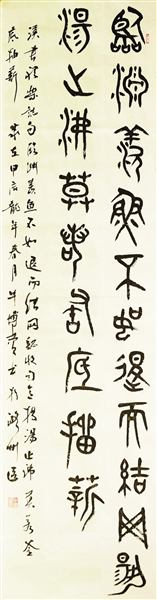 臨淵羨魚不如退而結网揚
湯止沸莫若釜底抽薪
漢書禮樂志句臨淵羨魚不如退而结网魏收句揚湯止沸莫若釜
底抽薪 歲在甲辰龍年春月牛書於潞州